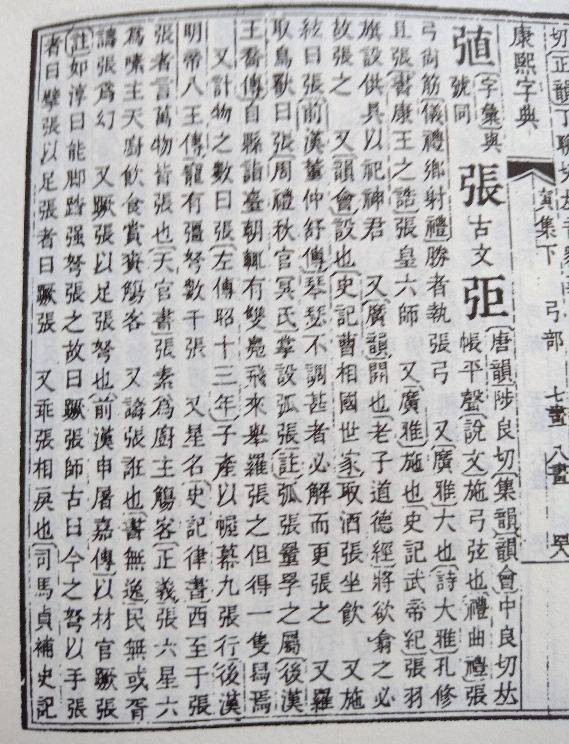 切正韻丁聯切𠀤音
康熙字典 寅集下 弓部 七畫 八畫
弨 字彙與號同 張 古文 𢎢 唐韻陟良切集韻韻會中良切𠀤帳平聲說文施弓弦也禮曲禮張
弓尙筋儀禮鄕射禮勝者執張弓 又廣雅大也詩大雅孔修
且張書康王之誥張皇六師 又廣雅施也史記武帝紀張羽
旗設供具以祀神君 又廣韻開也老子道德經將欲翕之必
故張之 又韻會設也史記曹相國世家取酒張坐飮 又施
絃曰張前漢董仲紓傳琴瑟不調甚者必解而更張之 又羅
取鳥獸曰張周禮秋官冥氏掌設弧張註弧張罿罦之屬後漢
王喬傳自縣詣臺朝輒有雙鳧飛來舉羅張之但得一隻舄焉
又計物之數曰張左傳昭十三年子產以幄幕九張行後漢
明帝八王傳寵有彊弩數千張 又星名史記律書西至于張
張者言萬物皆張也天官書張素爲廚主觴客正義張六星六
爲嗉主天廚飮食賞賚觴客 又譸張誑也書無逸民無或胥
譸張爲幻 又蹶張以足張弩也前漢申屠嘉傳以材官蹶張
註如淳曰能脚踏强弩張之故曰蹶張師古曰今之弩以手張
者曰擘張以足張者曰蹶張 又乖張相戾也司馬貞補史記